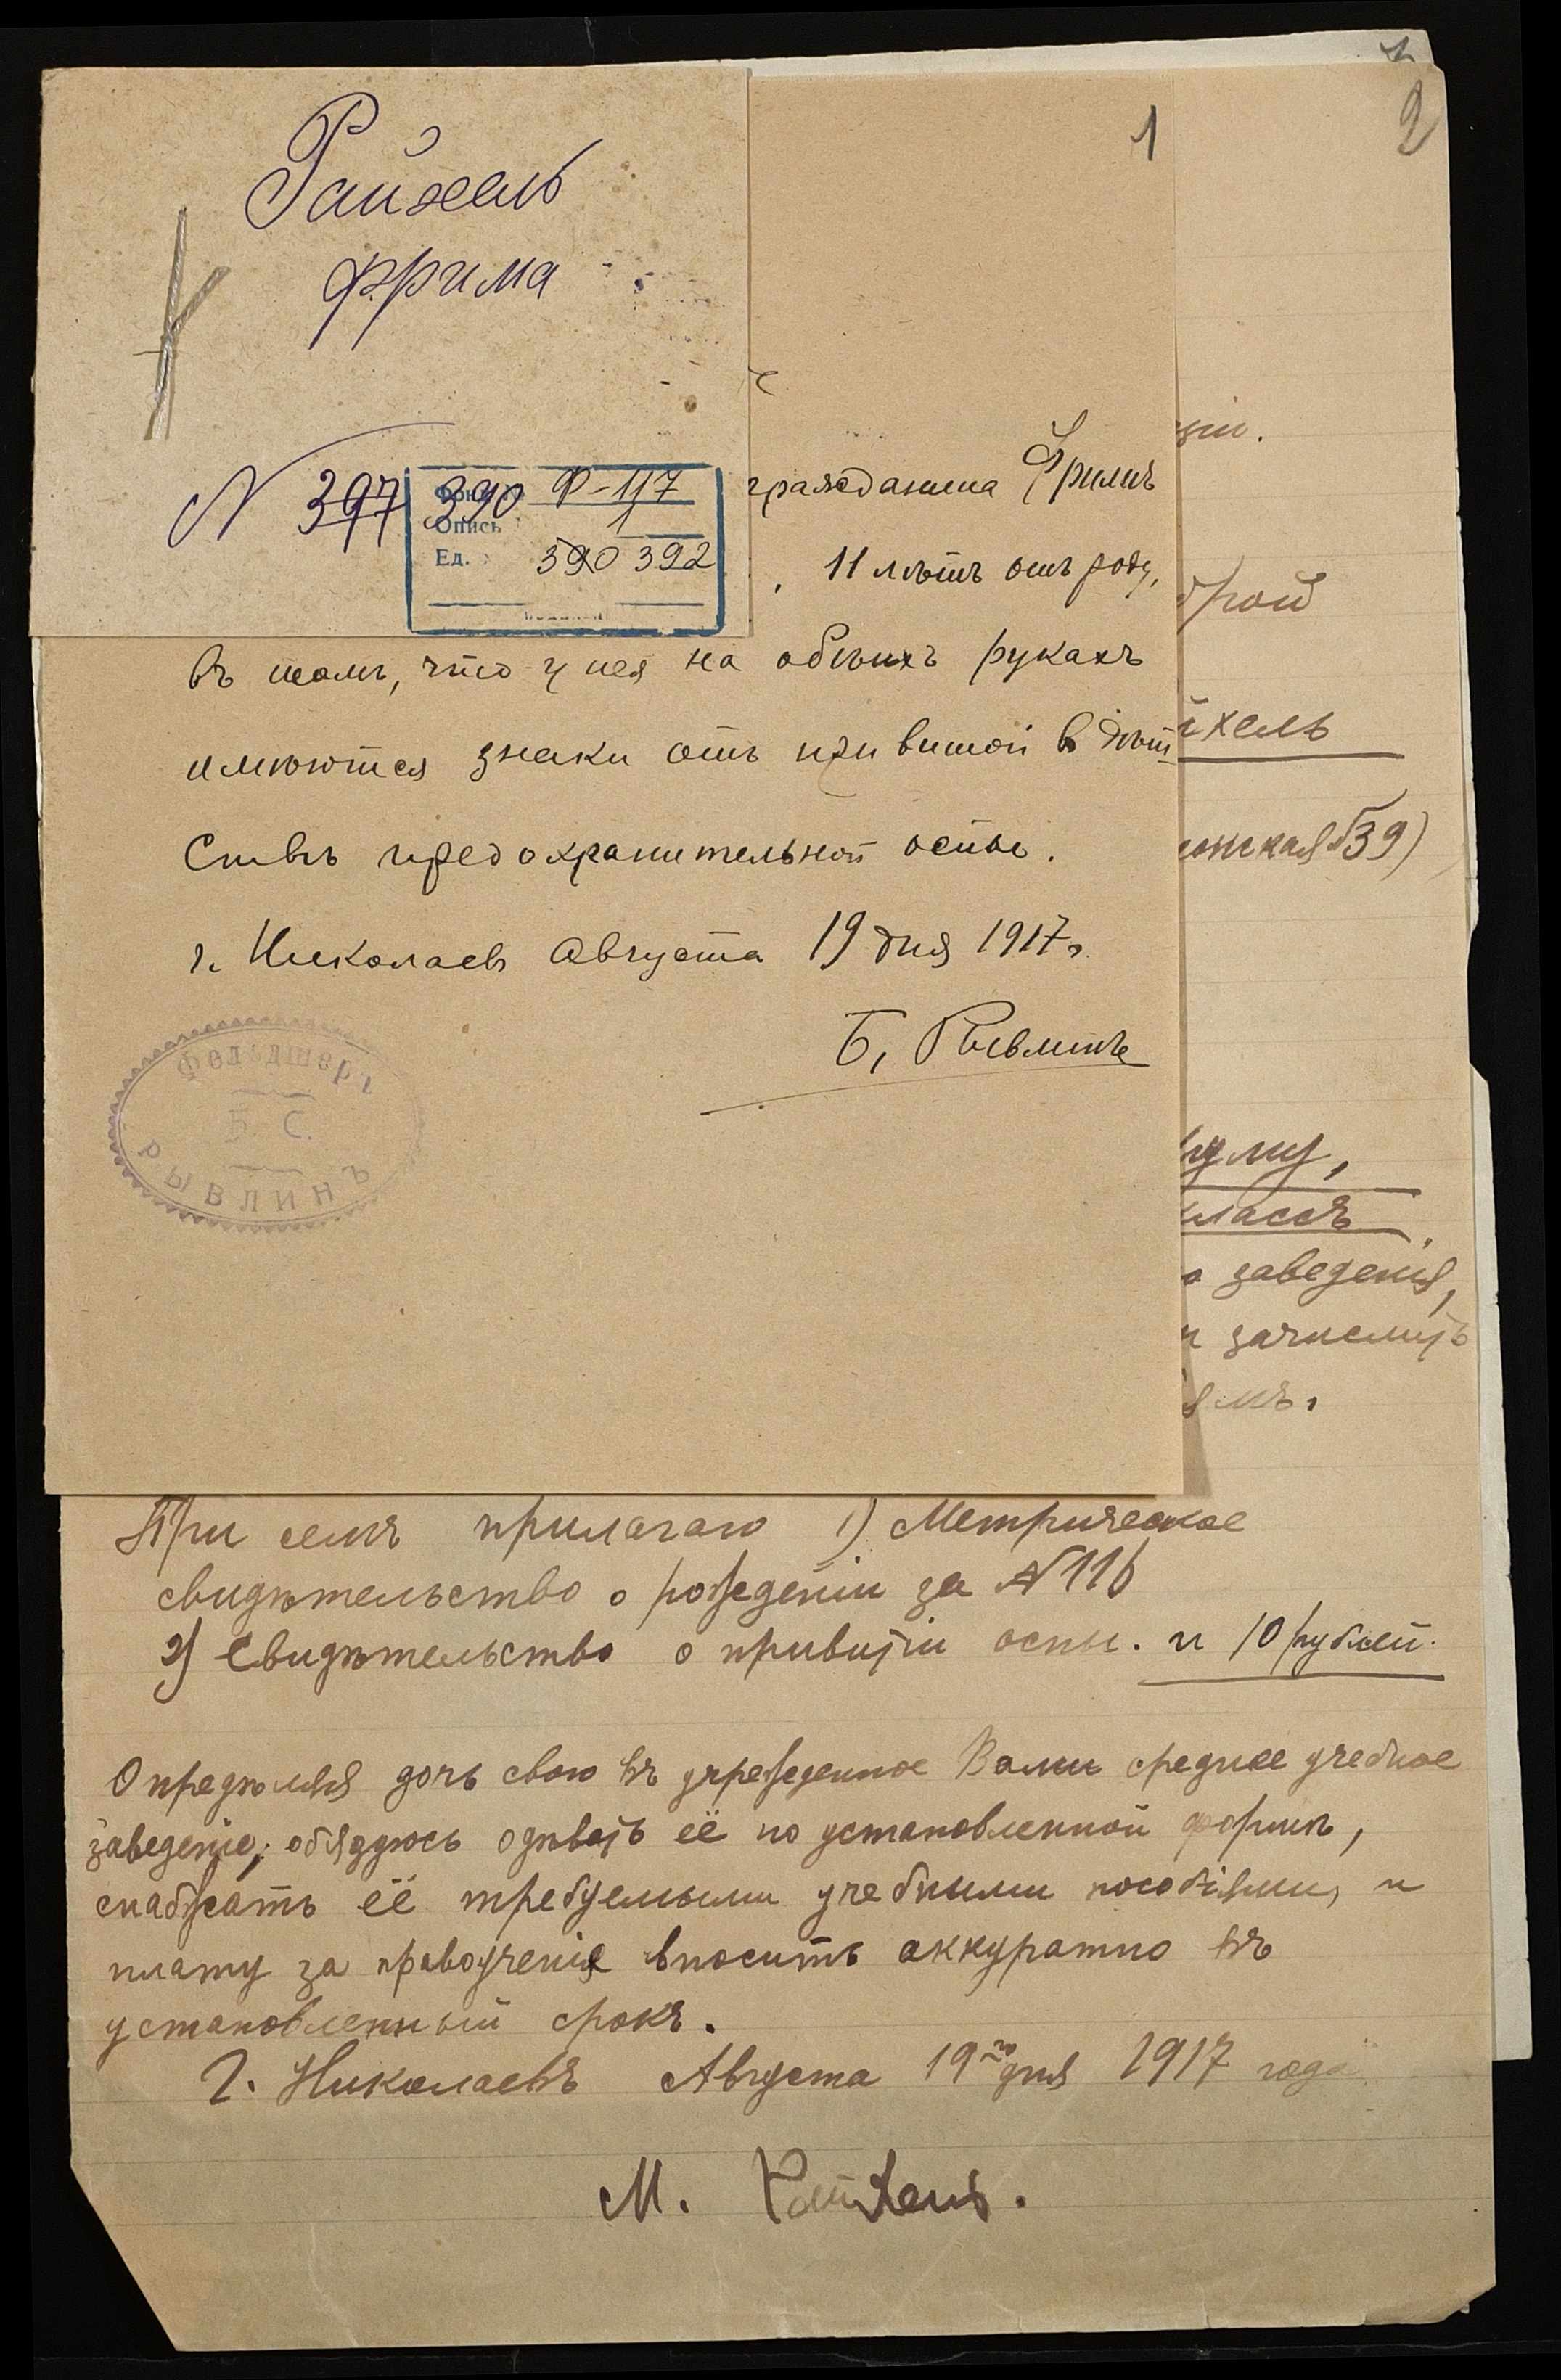 Райхель
Фрима
N 397 390
Фонд Ф-117
Опись 1
Ед. 390 392
1
2
гражданина Фримъ
11 лѣтъ отъ роду,
въ томъ, что у нея на обѣихъ рукахъ
имѣются знаки отъ привитой въ дѣт
ствѣ предохранительной оспы.
г. Николаевъ Августа 19 дня 1917 г.
Б. Рывлинъ
Фельдшеръ
Б. С.
РЫВЛИНЪ
ціи.
хель
39)
классъ
заведенія,
и зачислить
При семъ прилагаю 1) Метрическое
свидѣтельство о рожденіи за N 116
2) Свидѣтельство о привитіи оспы. и 10 рублей.
Опредѣляя дочь свою въ учрежденное Вами среднее учебное
заведеніе, обязуюсь одѣвать её по установленной формѣ,
снабжать её требуемыми учебными пособіями, и
плату за правоученіе вносить аккуратно въ
установленный срокъ.
Г. Николаевъ Августа 19го дня 1917 года
М. Райхель.